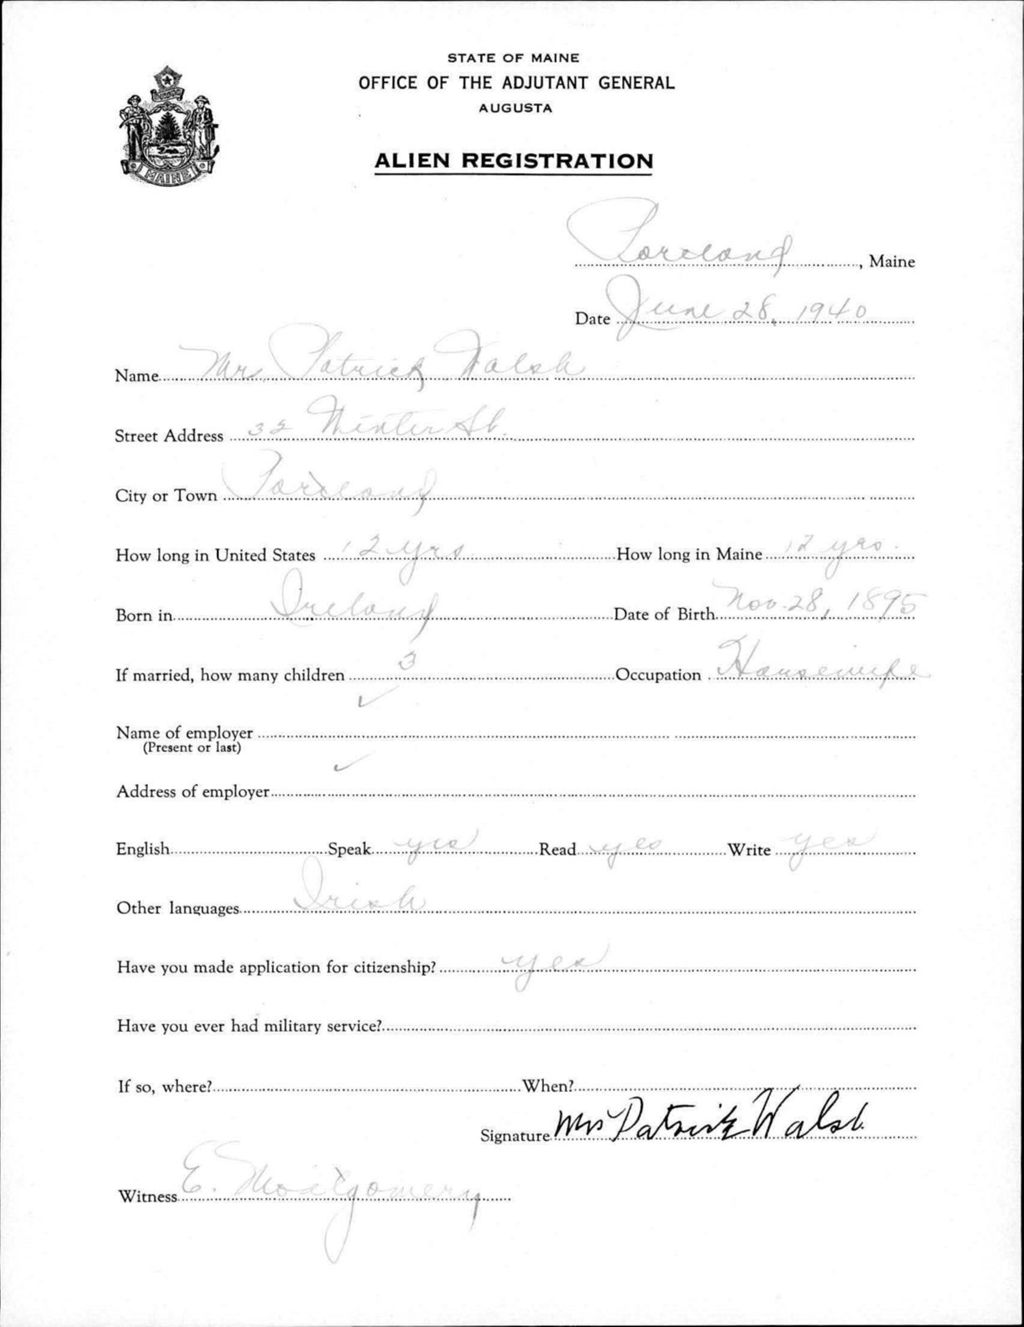 STATE OF MAINE
OFFICE OF THE ADJUTANT GENERAL
AUGUSTA
ALIEN REGISTRATION
MAINE
Portland, Maine
Date June 28, 1940
Name Mrs Patrick Walsh
Street Address 32 Winter St.
City or Town Portland
How long in United States 12 yrs How long in Maine 12 yrs.
Born in Ireland Date of Birth Nov. 28, 1895
If married, how many children 3 Occupation Housewife
Name of employer
(Present or last)
Address of employer
English Speak yes Read yes Write yes
Other languages Irish
Have you made application for citizenship? yes
Have you ever had military service?
If so, where? When?
Signature Mrs Patrick Walsh
Witness E. Montgomery